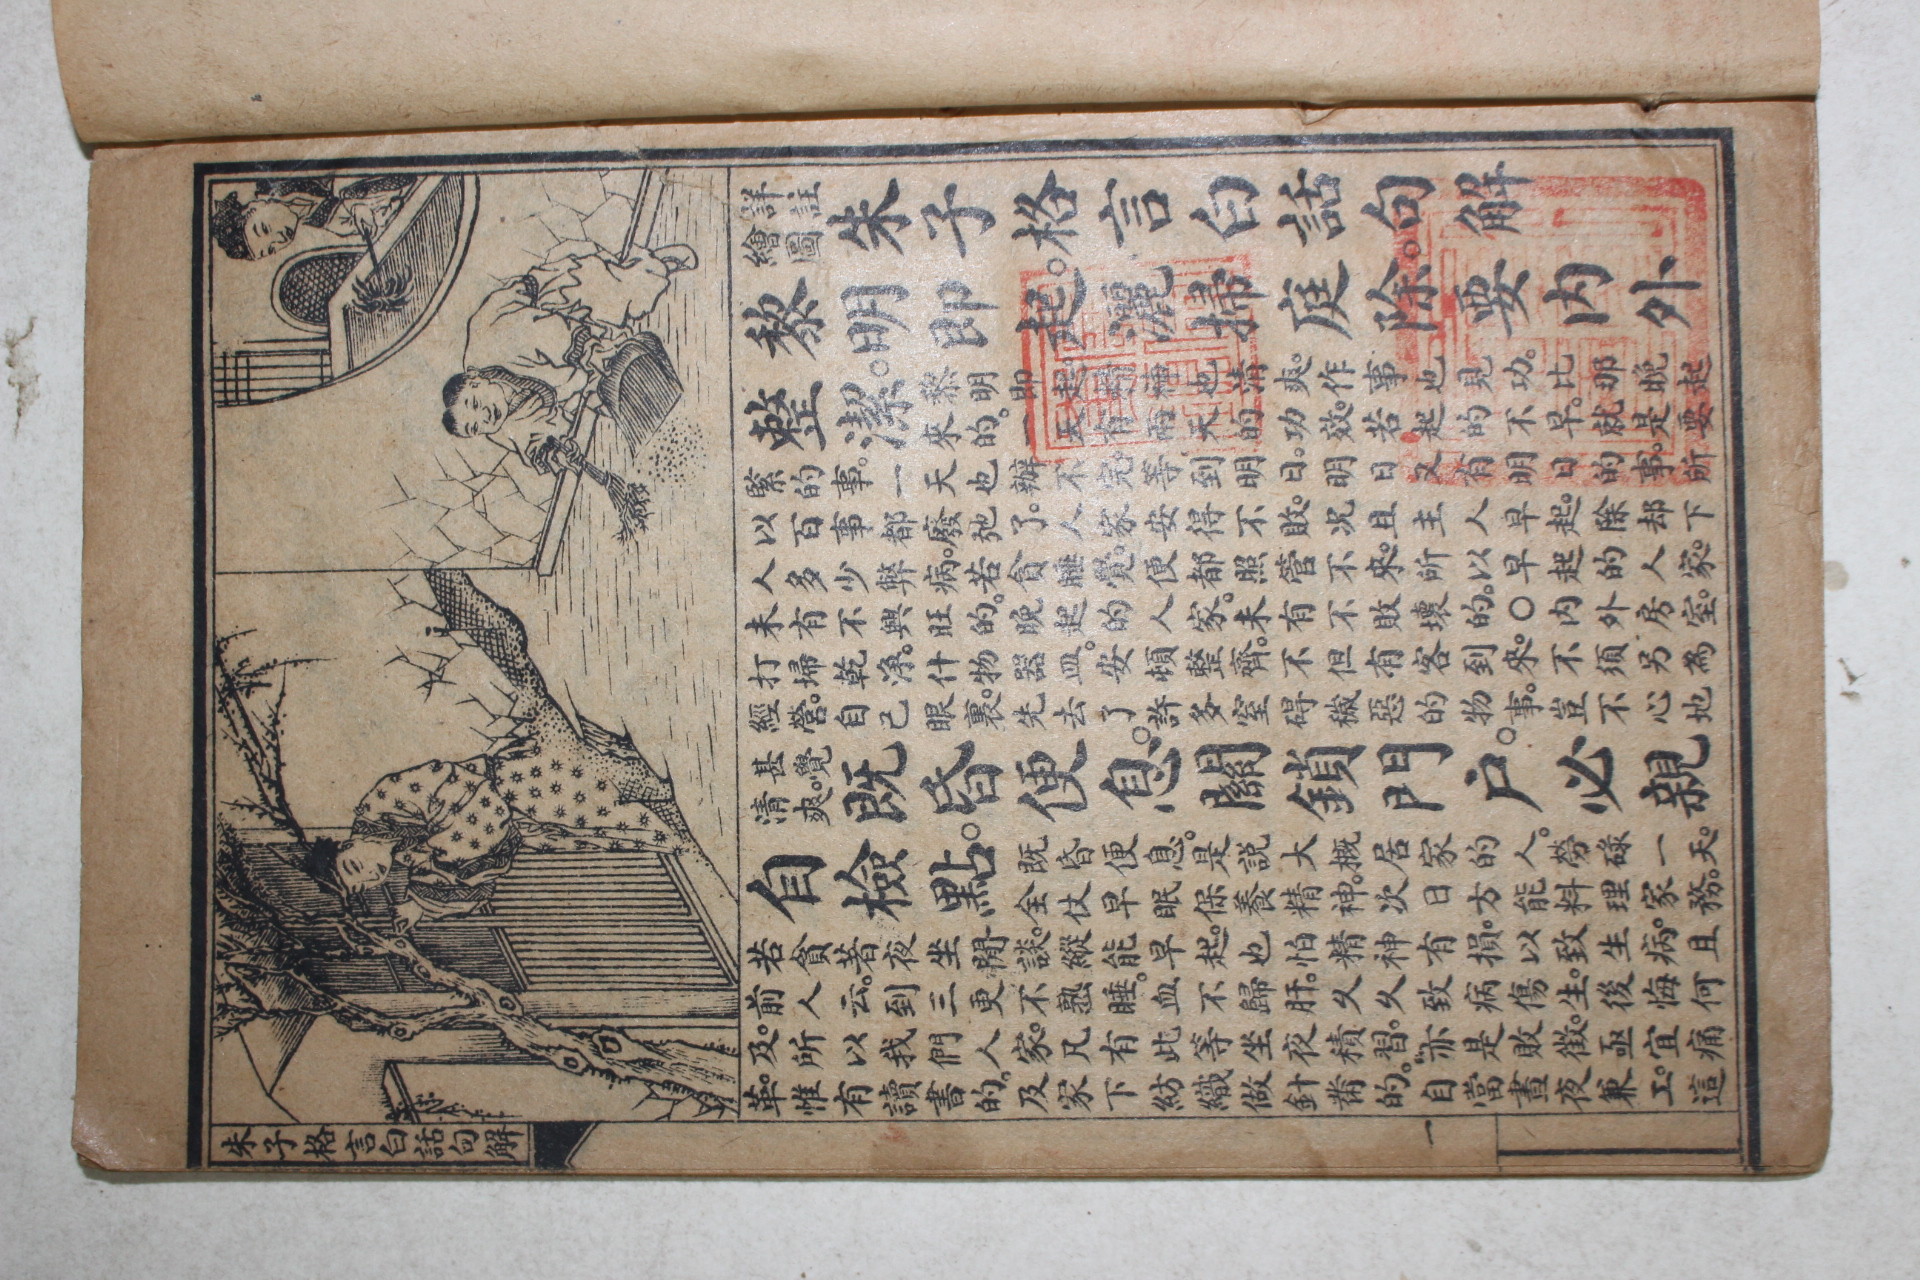 詳註
繪圖
朱子格言白話句解
黎明即起。灑掃庭除。要內外
整潔。
黎明即起。精神也清爽。作事也見功。比那晚起
來的。一天有兩天的功效。若起的不早。就是要
緊的事。一天也辦不完。等到明日。明日又有明日的事。所
以百事都廢弛了。人家安得不敗。况且主人早起。除却下
人多少弊病。若貪睡覺。便都照管不來。所以早起的人家。
未有不興旺的。晚起的人家。未有不敗壞的。○內外房室。
打埽乾淨。什物器皿。安頓整齊。不但有客到來。不須另為
經營。自己眼裏。先去了許多窒碍穢惡的物事。豈不心地
甚覺
清爽。
既昏便息。關鎖門户。必親
自檢點。
既昏便息。是説大概居家的人。勞碌一天。
全仗早眠保養精神。次日方能料理家務。
若貪著夜坐閒談。縱能早起。也怕精神有損。以致生病。且
前人云。到三更不熟睡。血不歸肝。久久致病傷生。後悔何
及。所以我們人家。凡有此等坐夜積習。亦是敗徵。亟宜痛
革。惟有讀書的。及家下紡織做針黹的。自當晝夜兼工。這
朱子格言白話句解
一